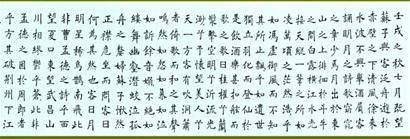 壬戌之秋七月既望
蘇子與客泛舟遊於
赤壁之下清風徐來
水波不興舉酒屬客
誦明月之詩歌窈窕
之章少焉月出於東
山之上徘徊於斗牛
之間白露橫江水光
接天縱一葦之所如
凌萬頃之茫然浩浩乎
如馮虛御風而不知
其所止飄飄乎如遺世
獨立羽化而登仙於
是飲酒樂甚扣舷而
歌之歌曰桂棹兮蘭
槳擊空明兮泝流光
渺渺兮予懷望美人兮
天一方客有吹洞簫者
倚歌而和之其聲嗚
嗚然如怨如慕如泣
如訴餘音嫋嫋不絕如
縷舞幽壑之潛蛟泣孤
舟之嫠婦蘇子愀然
正襟危坐而問客曰
何為其然也客曰月
明星稀烏鵲南飛此
非曹孟德之詩乎西
望夏口東望武昌山
川相繆鬱乎蒼蒼此非
孟德之困於周郎者
乎方其破荊州下江